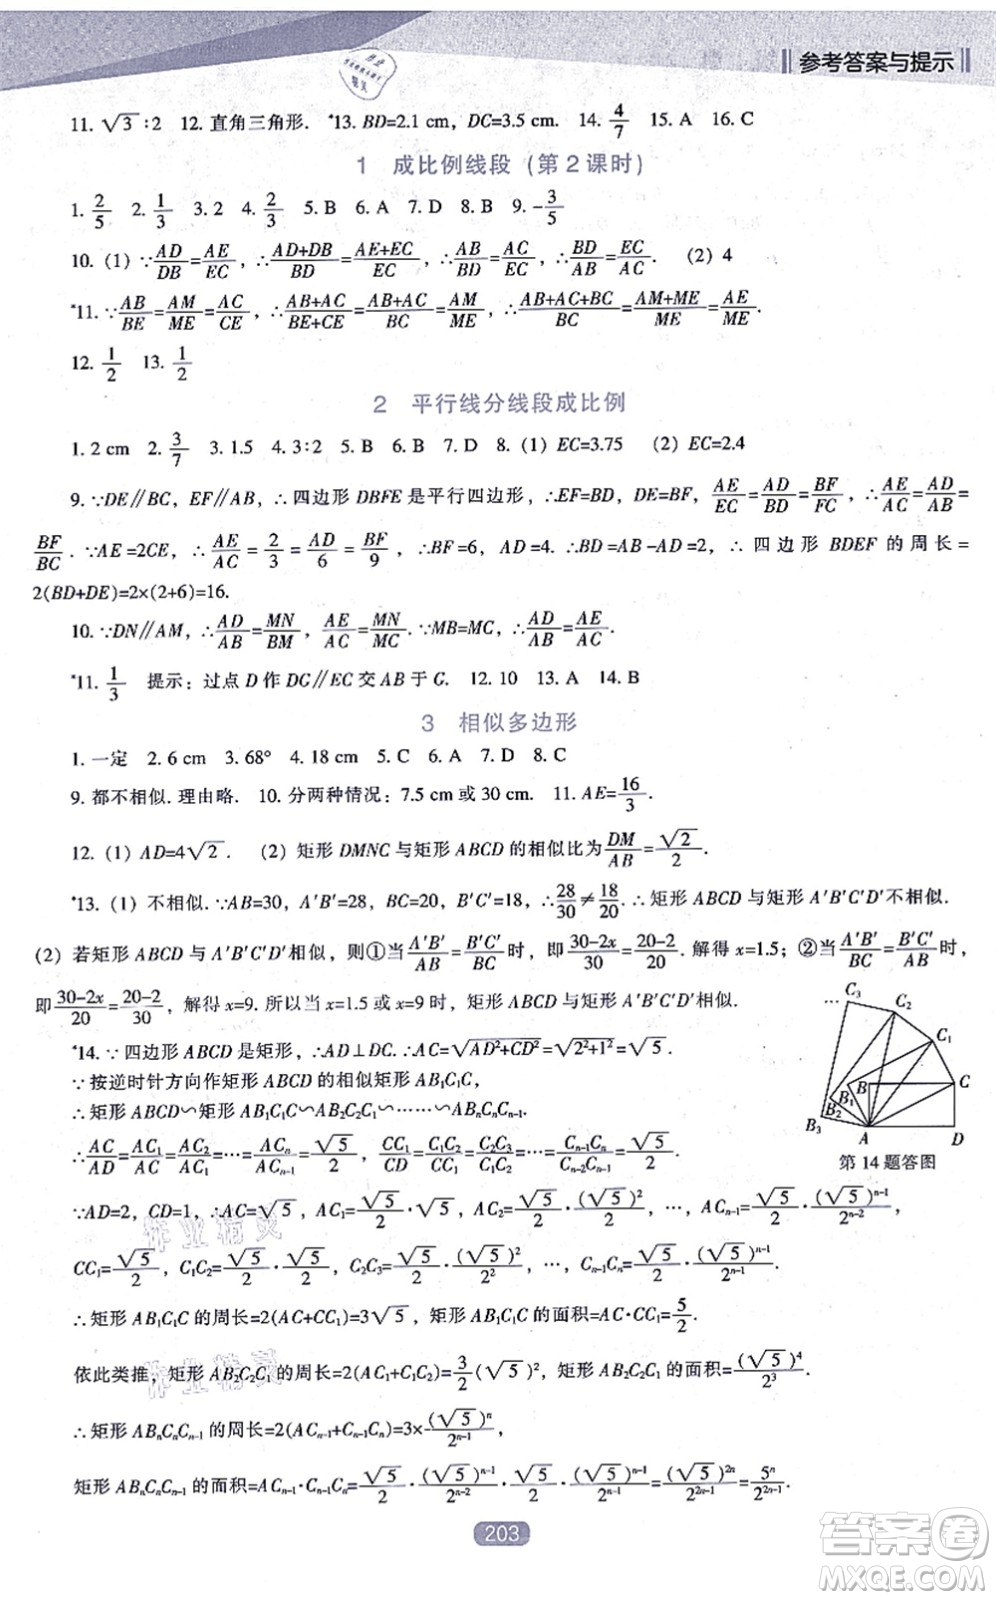 参考答案与提示
11. √3∶2  12. 直角三角形.  *13. BD=2.1 cm，DC=3.5 cm.  14. 4/7  15. A  16. C
1  成比例线段（第2课时）
1. 2/5  2. 1/3  3. 2  4. 2/3  5. B  6. A  7. D  8. B  9. -3/5
10. (1) ∵AD/DB=AE/EC，∴(AD+DB)/BD=(AE+EC)/EC，∴AB/BD=AC/EC，∴BD/AB=EC/AC.  (2) 4
*11. ∵AB/BE=AM/ME=AC/CE，∴(AB+AC)/(BE+CE)=(AB+AC)/BC=AM/ME，∴(AB+AC+BC)/BC=(AM+ME)/ME=AE/ME.
12. 1/2  13. 1/2
2  平行线分线段成比例
1. 2 cm  2. 3/7  3. 1.5  4. 3∶2  5. B  6. B  7. D  8. (1) EC=3.75  (2) EC=2.4
9. ∵DE∥BC，EF∥AB，∴四边形 DBFE 是平行四边形，∴EF=BD，DE=BF，AE/EC=AD/BD=BF/FC，∴AE/AC=AD/AB=
BF/BC. ∵AE=2CE，∴AE/AC=2/3=AD/6=BF/9，∴BF=6，AD=4. ∴BD=AB-AD=2，∴四边形 BDEF 的周长=
2(BD+DE)=2×(2+6)=16.
10. ∵DN∥AM，∴AD/AB=MN/BM，AE/AC=MN/MC. ∵MB=MC，∴AD/AB=AE/AC.
*11. 1/3  提示：过点 D 作 DC∥EC 交 AB 于 G.  12. 10  13. A  14. B
3  相似多边形
1. 一定  2. 6 cm  3. 68°  4. 18 cm  5. C  6. A  7. D  8. C
9. 都不相似. 理由略.  10. 分两种情况：7.5 cm 或 30 cm.  11. AE=16/3.
12. (1) AD=4√2.  (2) 矩形 DMNC 与矩形 ABCD 的相似比为 DM/AB=√2/2.
*13. (1) 不相似. ∵AB=30，A′B′=28，BC=20，B′C′=18，∴28/30≠18/20. ∴矩形 ABCD 与矩形 A′B′C′D′不相似.
(2) 若矩形 ABCD 与 A′B′C′D′相似，则①当A′B′/AB=B′C′/BC时，即(30-2x)/30=(20-2)/20. 解得 x=1.5；②当A′B′/BC=B′C′/AB时，
即(30-2x)/20=(20-2)/30，解得 x=9. 所以当 x=1.5 或 x=9 时，矩形 ABCD 与 A′B′C′D′相似.
*14. ∵四边形 ABCD 是矩形，∴AD⊥DC. ∴AC=√(AD²+CD²)=√(2²+1²)=√5.
∵按逆时针方向作矩形 ABCD 的相似矩形 AB₁C₁C，
∴矩形 ABCD∽矩形 AB₁C₁C∽AB₂C₂C₁∽……∽ABₙCₙCₙ₋₁.
∴AC/AD=AC₁/AC=AC₂/AC₁=…=ACₙ/ACₙ₋₁=√5/2，CC₁/CD=C₁C₂/CC₁=C₂C₃/C₁C₂=…=Cₙ₋₁Cₙ/Cₙ₋₂Cₙ₋₁=√5/2.
∵AD=2，CD=1，∴AC=√5，AC₁=√5/2·√5，AC₂=√5/2·(√5)²/2，…，ACₙ₋₁=√5/2·(√5)ⁿ⁻¹/2ⁿ⁻²，
CC₁=√5/2，C₁C₂=√5/2·√5/2，C₂C₃=√5/2·(√5)²/2²，…，Cₙ₋₁Cₙ=√5/2·(√5)ⁿ⁻¹/2ⁿ⁻¹.
∴矩形 AB₁C₁C 的周长=2(AC+CC₁)=3√5，矩形 AB₁C₁C 的面积=AC·CC₁=5/2.
依此类推，矩形 AB₂C₂C₁ 的周长=2(AC₁+C₁C₂)=3/2(√5)²，矩形 AB₂C₂C₁ 的面积=(√5)⁴/2³.
∴矩形 ABₙCₙCₙ₋₁ 的周长=2(ACₙ₋₁+Cₙ₋₁Cₙ)=3×(√5)ⁿ/2ⁿ⁻¹，
矩形 ABₙCₙCₙ₋₁ 的面积=ACₙ₋₁·Cₙ₋₁Cₙ=√5/2·(√5)ⁿ⁻¹/2ⁿ⁻²·√5/2·(√5)ⁿ⁻¹/2ⁿ⁻¹=(√5)²ⁿ/2²ⁿ⁻¹=5ⁿ/2²ⁿ⁻¹.
… C₃ C₂ C₁ C
B B₁ B₂ B₃ A D
第 14 题答图
203
答案卷
MXQE.COM